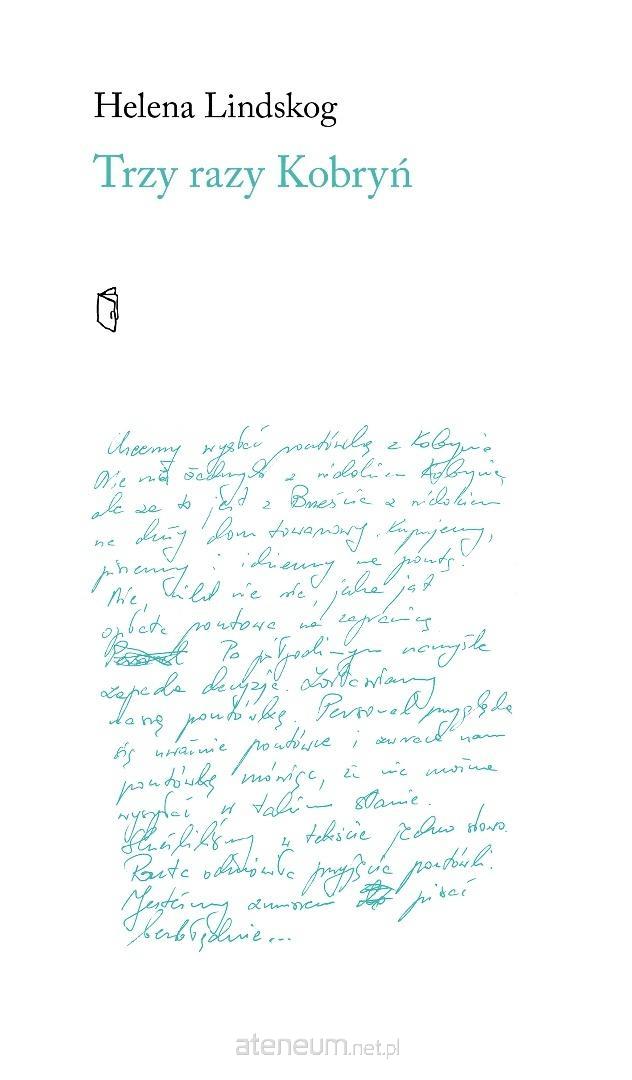 Helena Lindskog
Trzy razy Kobryń
Chcemy wysłać pocztówkę z Kobrynia
Nie ma żadnych z widokiem Kobrynia
ale za to jest z Brześcia z widokiem
na duży dom towarowy. Kupujemy,
piszemy i idziemy na pocztę.
Nie, nikt nie wie, jaka jest
opłata pocztowa na zagranicę
Po półgodzinnym namyśle
zapada decyzja. Zostawiamy
naszą pocztówkę. Personel przygląda
się uważnie pocztówce i zwraca nam
pocztówkę mówiąc, że nie można
wysyłać w takim stanie.
Skreśliliśmy w tekście jedno słowo.
Poczta odmówiła przyjęcia pocztówki.
Jesteśmy zmuszeni pisać
bezbłędnie...
ateneum.net.pl